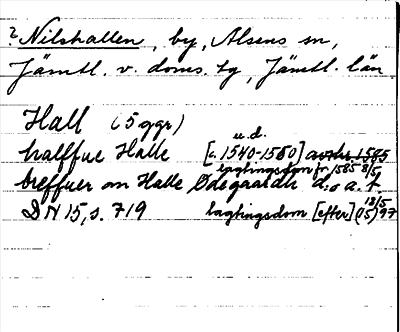 ? Nilshallen, by, Alsens sn,
Jämtl. v. doms. tg, Jämtl. län
Hall (5 ggr)
u.d.
halffue Halle [c. 1540-1580] avskr. 1585
lagtingsdom fr 1585 8/5
breffuer om Halle Ødegaarde d. o a. t.
DN 15, s. 719 lagtingsdom [efter] (15)97 18/5